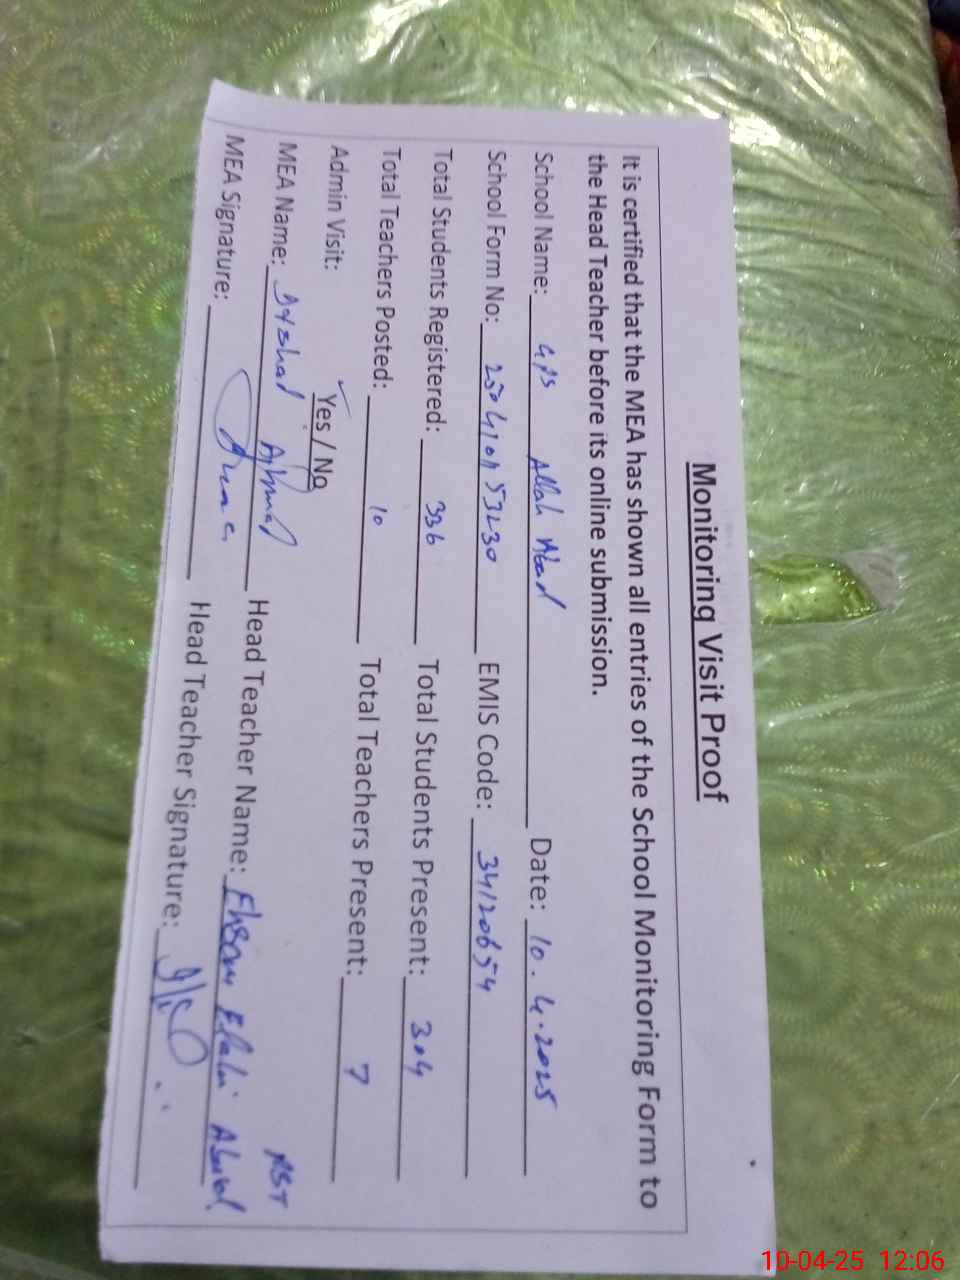 Monitoring Visit Proof
It is certified that the MEA has shown all entries of the School Monitoring Form to
the Head Teacher before its online submission.
School Name: GPS Allah Abad Date: 10.4.2025
School Form No: EMIS Code: 34120654
Total Students Registered: 336 Total Students Present: 304
Total Teachers Posted: 10 Total Teachers Present: 7
Admin Visit: Yes / No
MEA Name: Head Teacher Name:
MEA Signature: Head Teacher Signature:
10-04-25 12:06